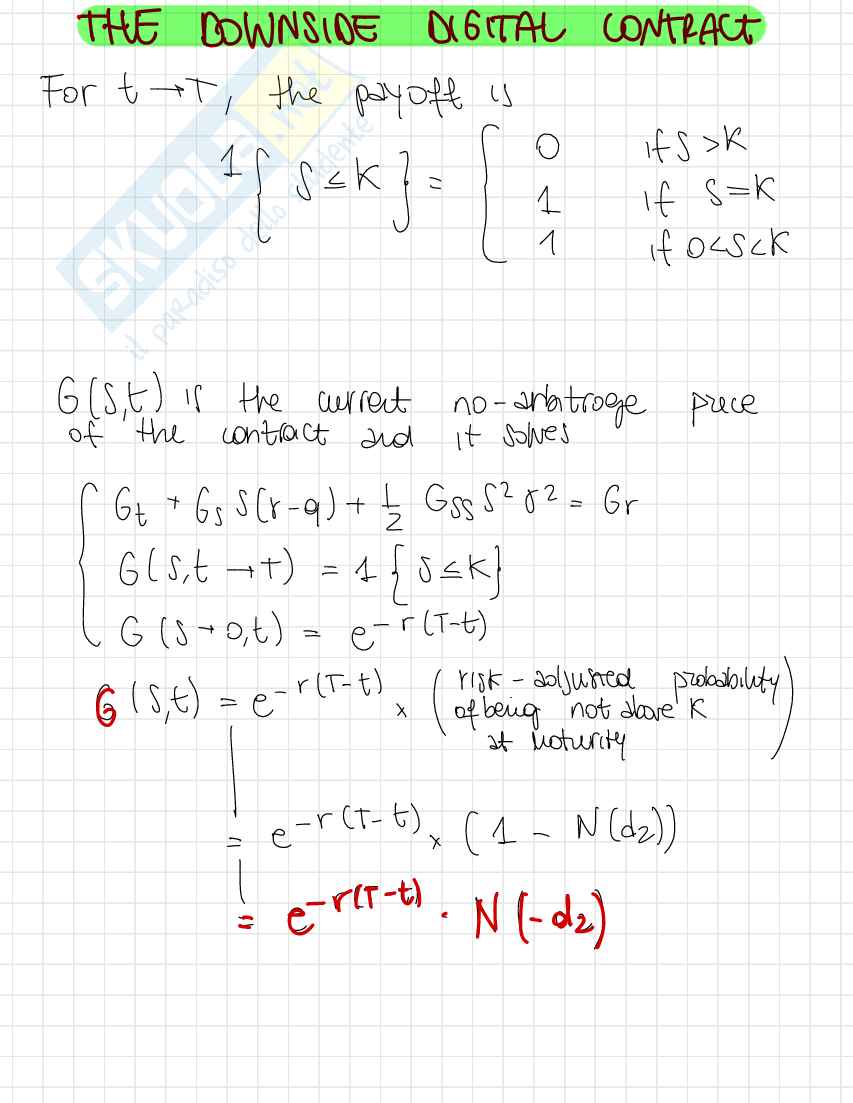 THE DOWNSIDE DIGITAL CONTRACT
For t → T, the payoff is
1{S ≤ K} = { 0 if S > K
1 if S = K
1 if 0 < S < K
SKUOLA.net
il paradiso dello studente
G(S,t) is the current no-arbitrage price
of the contract and it solves
G_t + G_S S(r-q) + 1/2 G_SS S² σ² = Gr
G(S,t → T) = 1{S ≤ K}
G(S → 0,t) = e^{-r(T-t)}
G(S,t) = e^{-r(T-t)} × (risk-adjusted probability
of being not above K
at maturity)
= e^{-r(T-t)} × (1 - N(d₂))
= e^{-r(T-t)} · N(-d₂)